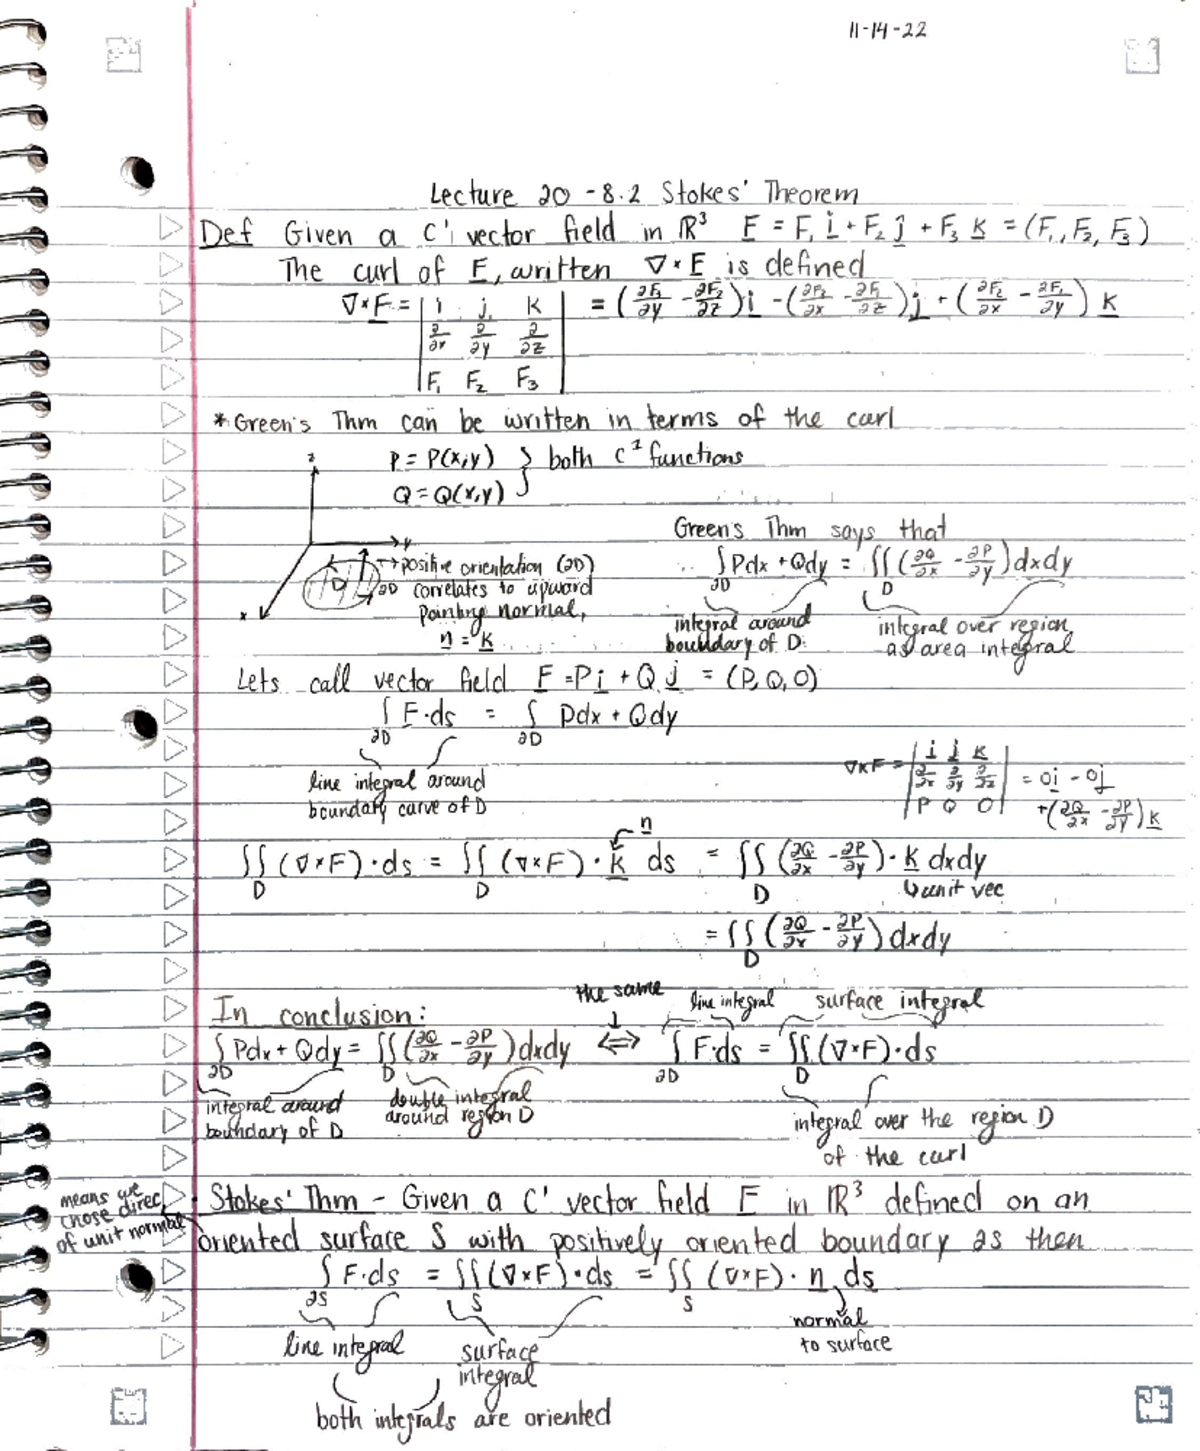 11-14-22
Lecture 20 - 8.2 Stokes' Theorem
Def Given a C' vector field in ℝ³ F = F₁ i + F₂ j + F₃ k = (F₁, F₂, F₃)
The curl of F, written ∇×F is defined
∇×F = | i j k | = (∂F₃/∂y - ∂F₂/∂z) i - (∂F₃/∂x - ∂F₁/∂z) j + (∂F₂/∂x - ∂F₁/∂y) k
∂/∂x ∂/∂y ∂/∂z
F₁ F₂ F₃
* Green's Thm can be written in terms of the curl
P = P(x,y) } both C¹ functions
Q = Q(x,y)
z
y
x
D
∂D
→ positive orientation (∂D)
correlates to upward
pointing normal,
n = k
Green's Thm says that
∫∂D Pdx + Qdy = ∬D (∂Q/∂x - ∂P/∂y) dxdy
integral around
boundary of D
integral over region
as area integral
Lets call vector field F = P i + Q j = (P, Q, 0)
∫∂D F·ds = ∫∂D Pdx + Qdy
line integral around
boundary curve of D
∇×F = | i j k | = 0i - 0j
∂/∂x ∂/∂y ∂/∂z
P Q 0 + (∂Q/∂x - ∂P/∂y) k
n
∬D (∇×F)·ds = ∬D (∇×F)·k ds = ∬D (∂Q/∂x - ∂P/∂y)·k dxdy
↳ unit vec
= ∬D (∂Q/∂x - ∂P/∂y) dxdy
In conclusion:
the same
line integral surface integral
∫∂D Pdx + Qdy = ∬D (∂Q/∂x - ∂P/∂y) dxdy ⇔ ∫∂D F·ds = ∬D (∇×F)·ds
integral around
boundary of D
double integral
around region D
integral over the region D
of the curl
means we
chose direc
of unit normal
Stokes' Thm - Given a C' vector field F in ℝ³ defined on an
oriented surface S with positively oriented boundary ∂S then
∫∂S F·ds = ∬S (∇×F)·ds = ∬S (∇×F)·n ds
line integral
surface
integral
normal
to surface
both integrals are oriented